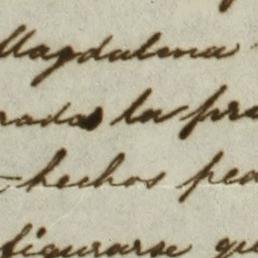 Magdalena
rada la pr
hechos pe
figurarse qu